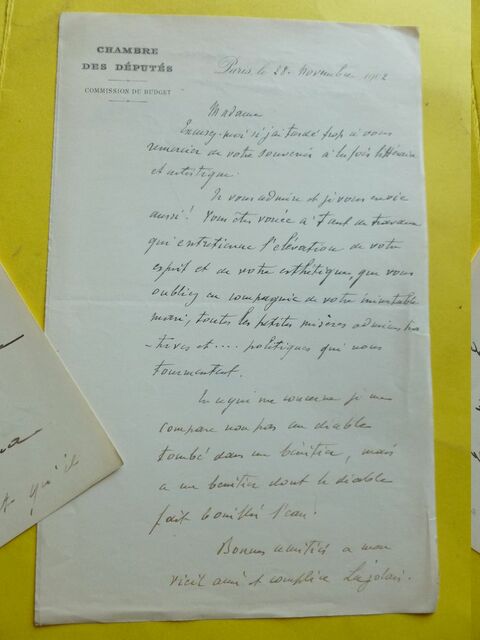 CHAMBRE
DES DÉPUTÉS
COMMISSION DU BUDGET
Paris, le 28 novembre 1902
Madame
Excusez-moi si j'ai tardé trop à vous
remercier de votre souvenir à la fois littéraire
et artistique.
Je vous admire et je vous envie
aussi! Vous êtes vouée à tant de travaux
qui entretienne l'élévation de votre
esprit et de votre esthétique, que vous
oubliez en compagnie de votre inimitable
mari, toutes les petites misères administra
-tives et .... politiques qui nous
tourmentent.
En ce qui me concerne je me
compare non pas au diable
tombé dans un bénitier, mais
a un benitier dont le diable
fait bouillir l'eau.
Bonnes amitiés a mon
vieil ami et complice
qu'il